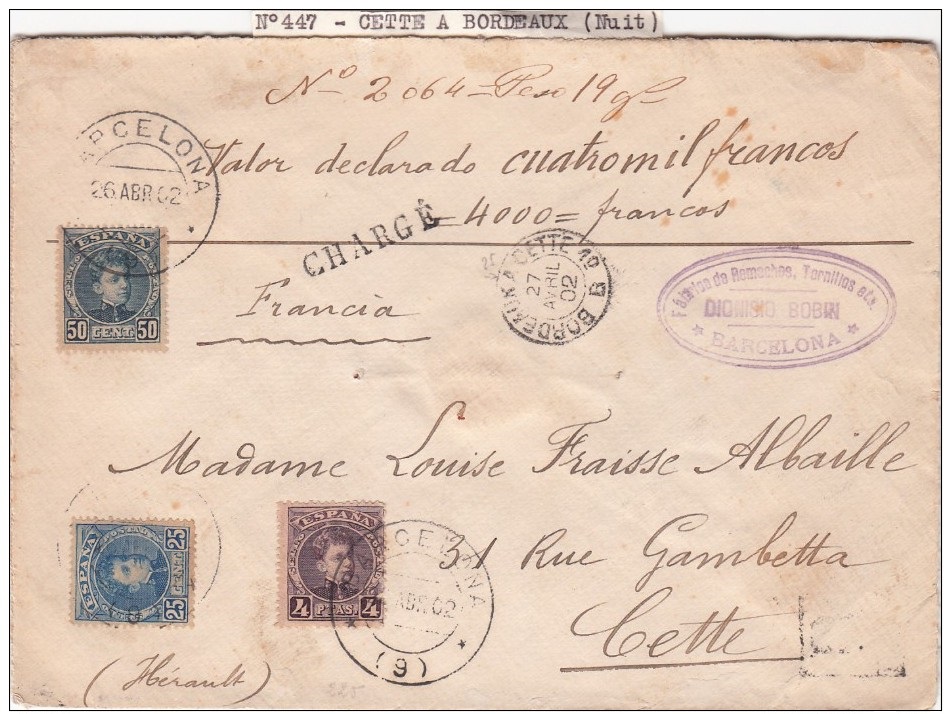 N° 447 - CETTE A BORDEAUX (Nuit)
Nº 2064 = Peso 19 gr
Valor declarado cuatromil francos
= 4000 = francos
BARCELONA
26 ABR 02
CHARGÉ
Francia
BORDEAUX A CETTE 1º B
27
AVRIL
02
Fábrica de Remaches, Tornillos etc.
DIONISIO BOBIN
* BARCELONA *
ESPAÑA
50 CENT 50
Madame Louise Fraisse Albaille
51 Rue Gambetta
Cette
(Hérault)
ESPAÑA
25 CENT 25
ESPAÑA
4 PTAS. 4
BARCELONA
ABR 02
(9)
225